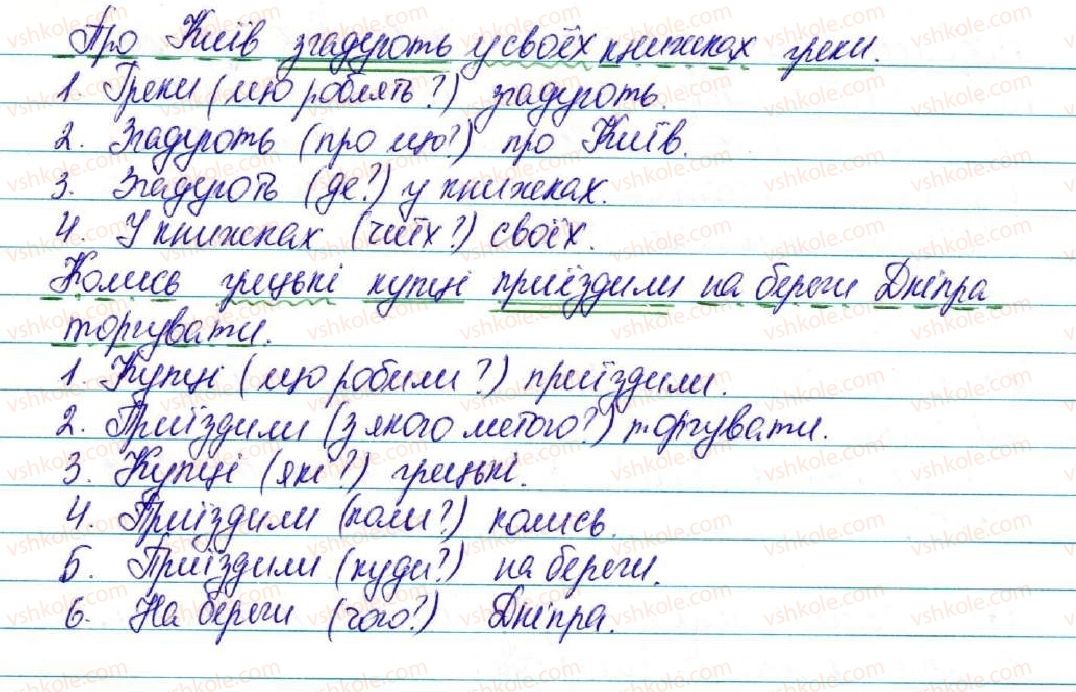 Про Київ згадують у своїх книжках греки.
1. Греки (що роблять?) згадують.
2. Згадують (про що?) про Київ.
3. Згадують (де?) у книжках.
4. У книжках (чиїх?) своїх.
Колись грецькі купці приїздили на береги Дніпра
торгувати.
1. Купці (що робили?) приїздили.
2. Приїздили (з якою метою?) торгувати.
3. Купці (які?) грецькі.
4. Приїздили (коли?) колись.
5. Приїздили (куди?) на береги.
6. На береги (чого?) Дніпра.